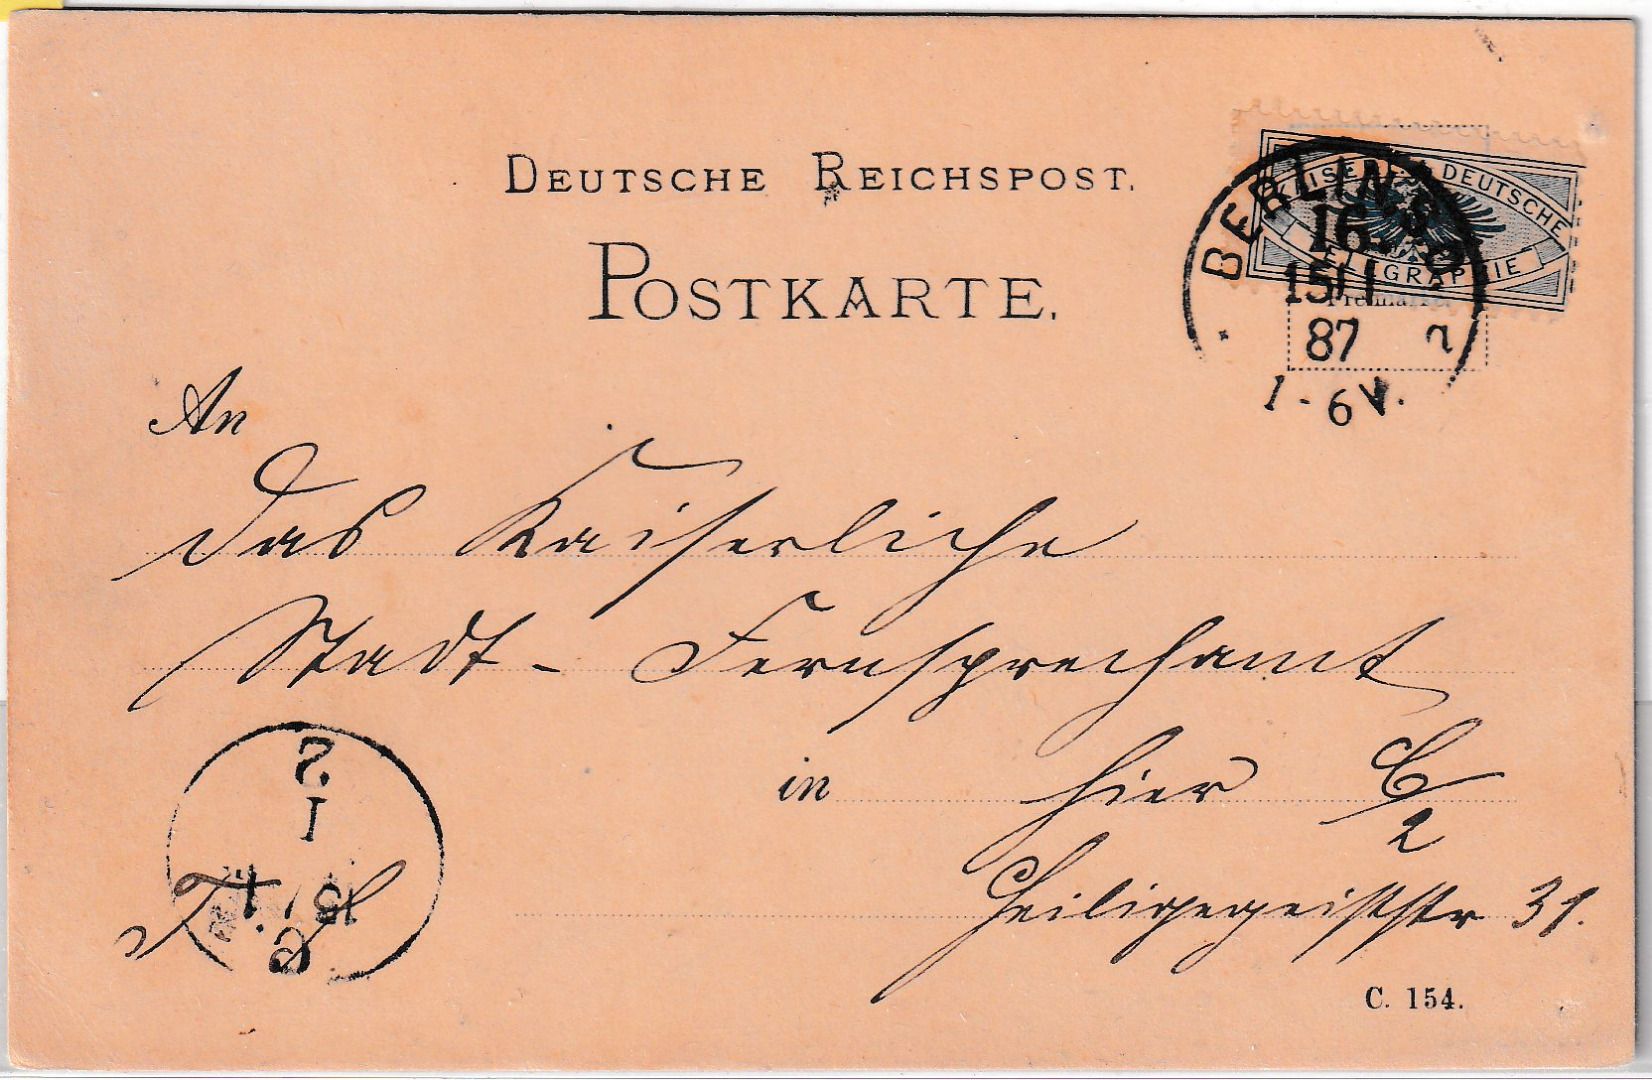 DEUTSCHE REICHSPOST.
POSTKARTE.
KAISERL. DEUTSCHE
TELEGRAPHIE
Freimarke.
BERLIN, S.O.
16
15/1
87
1-6V.
An
das Kaiserliche
Stadt-Fernsprechamt
in hier C/2
Heiligegeiststr 31.
2
1
15 1.
C. 154.